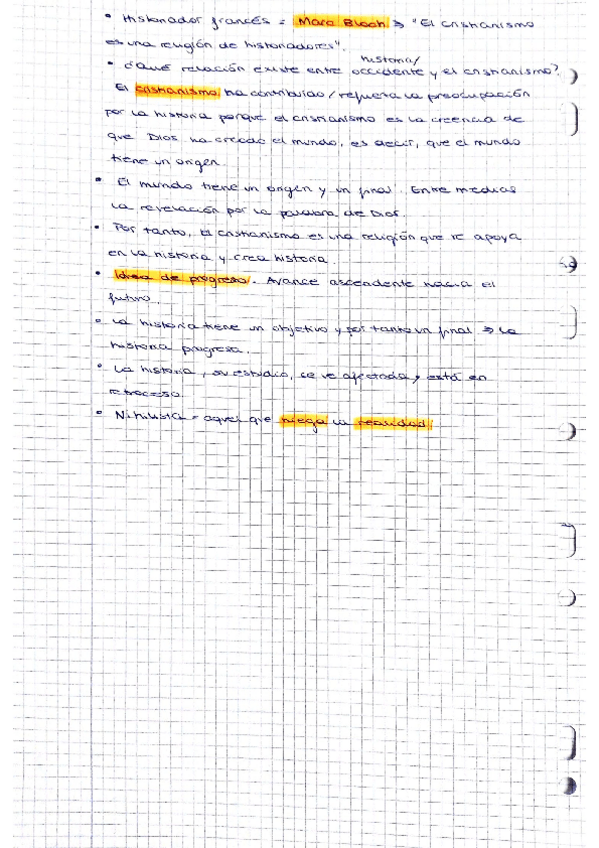 • Historiador francés = Marc Bloch → "El Cristianismo
es una religión de historiadores".
historia/
• ¿Qué relación existe entre occidente y el cristianismo?
El cristianismo ha contribuido / refuerza la preocupación
por la historia porque el cristianismo es la creencia de
que Dios ha creado el mundo, es decir, que el mundo
tiene un origen.
• El mundo tiene un origen y un final. Entre medias
la revelación por la palabra de Dios.
• Por tanto, el cristianismo es una religión que se apoya
en la historia y crea historia.
• Idea de progreso. Avance ascendente hacia el
futuro.
• La historia tiene un objetivo y por tanto un final → la
historia progresa.
• La historia, su estudio, se ve afectada y está en
retroceso.
• Nihilista = aquel que niega la realidad.